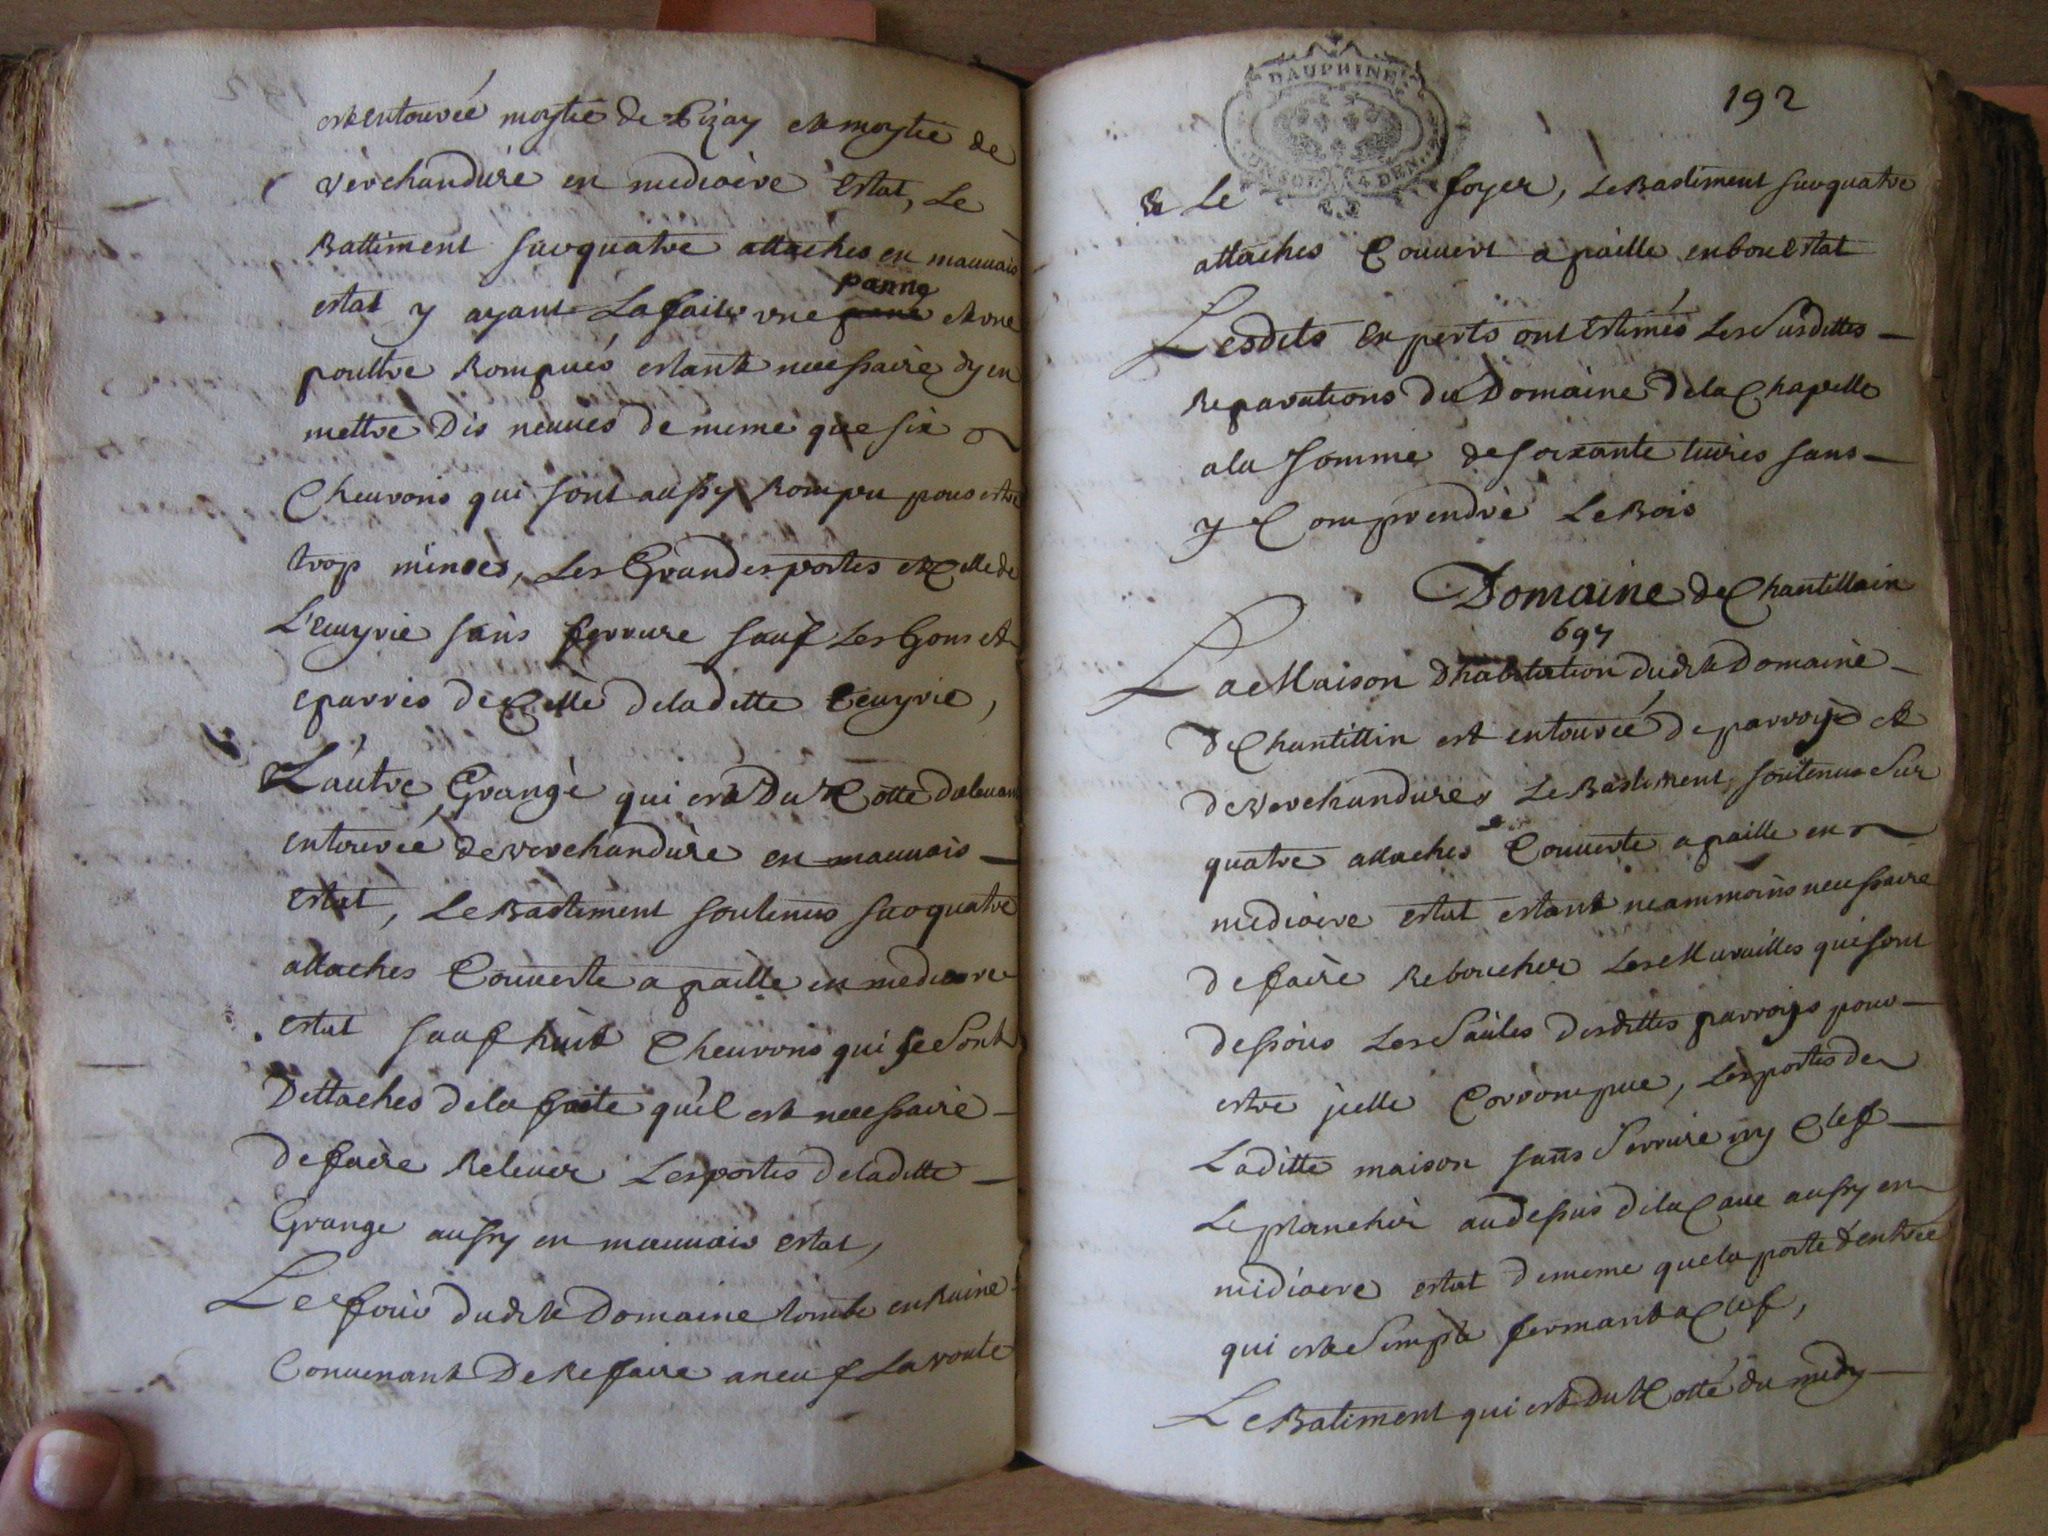 est entouréé moytie de Pizay et moytie de
vèrchandiére en mediocre Estat, Le
Battiment sur quatre attaches en mauuais
panne
estat y ayant La faite vne pane et vne
pouttre Rompués estant necessaire dy en
mettre Dis neuues de meme que six
Cheurons qui sont aussy Rompu pour estre
trop minces, Les Grandes portes et Celle de
L'euyrie sans ferrure sauf Les Gons et
eparres de Celle de la ditte Ecuyrie,
L'autre Grange qui est Du Cotté du leuant
entouréé de verchandiére en mauuais
Estat, Le Bastiment soutenus sur quatre
attaches Couuerte a paille en mediocre
estat sauf huit Cheurons qui se sont
Dettaches de la faite qu'il est necessaire
de faire Releuer Les portes de la ditte
Grange aussy en mauuais estat,
Le four dudit Domaine tombe en Ruine
Conuenant De Refaire a neuf La voute
DAUPHINE
UN SOL 4 DEN.
192
& Le foyer, Le Bastiment sur quatre
attaches Couuert a paille en bon Estat
Lesdits Experts ont Estimés Les Susdittes
Reparations du Domaine de la Chapelle
a la somme de soixante liures sans
y Comprendre Le Bois
Domaine de Chantillain
697
La Maison d'habitation dudit Domaine
de Chantillin est entouréé de parroys et
de verchandiéres Le Bastiment soutenus sur
quatre attaches Couuerte a paille en
mediocre estat estant neammoins necessaire
de faire Reboucher Les Murailles qui sont
dessous Les Saules desdittes parroys pour
estre jcelle Corrompue, Les portes de
Laditte maison sans Serrure ny Clef
Le plancher au dessus de la Caue aussy en
mediocre estat de meme que la porte d'entrée
qui est Simple fermant a Clef,
Le Batiment qui est Du Cotté du midy